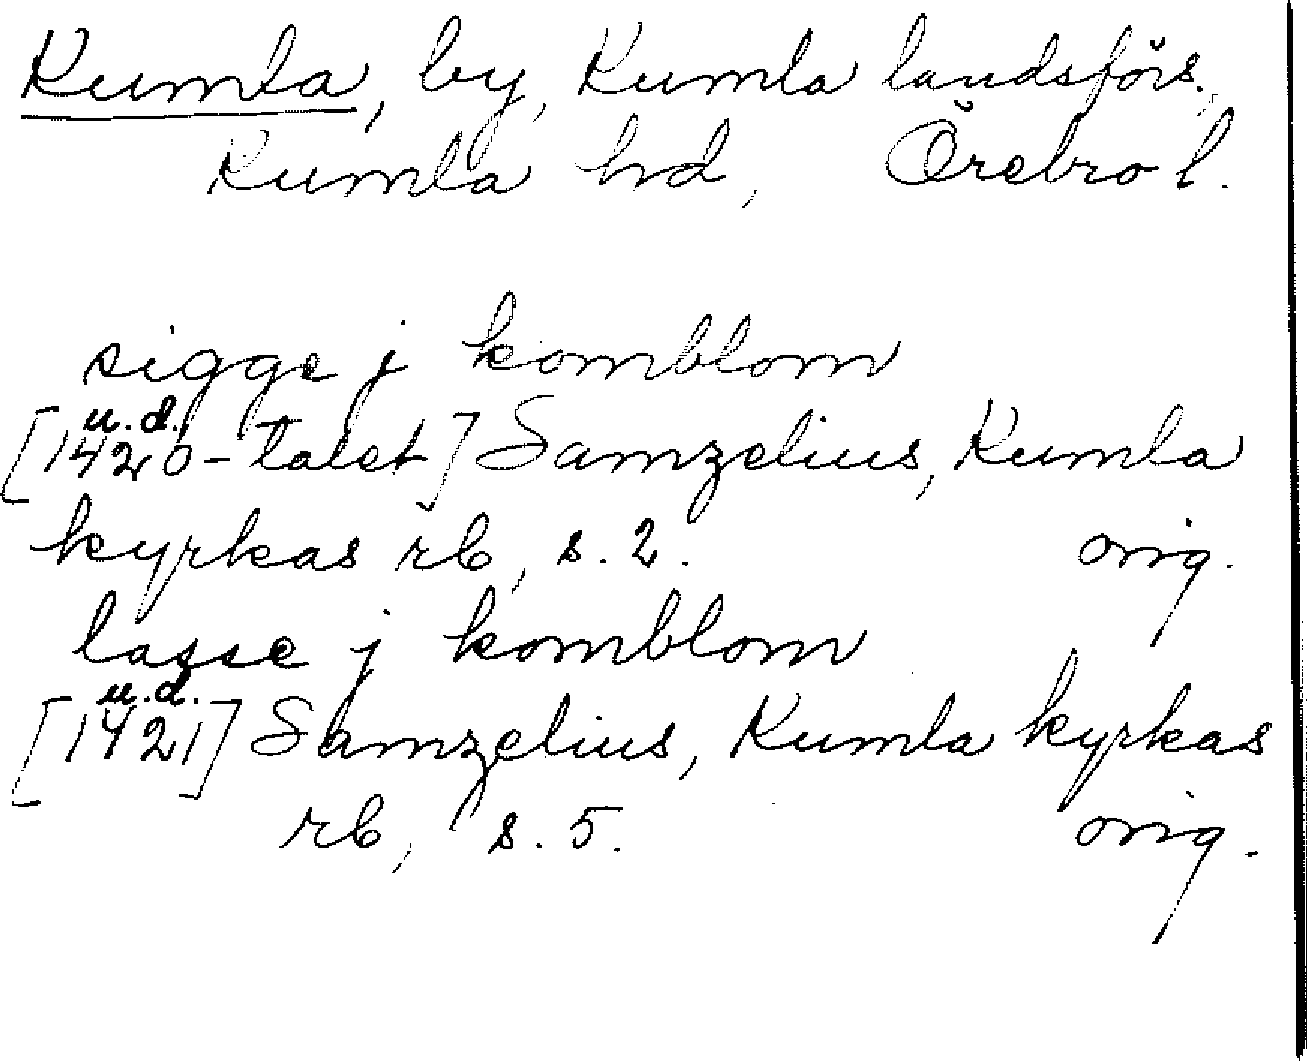 Kumla, by, Kumla landsförs.,
Kumla hd, Örebro l.
sigge j komblom
u.d.
[1420-talet] Samzelius, Kumla
kyrkas rb, s. 2. orig.
lasse j komblom
u.d.
[1421] Samzelius, Kumla kyrkas
rb, s. 5. orig.